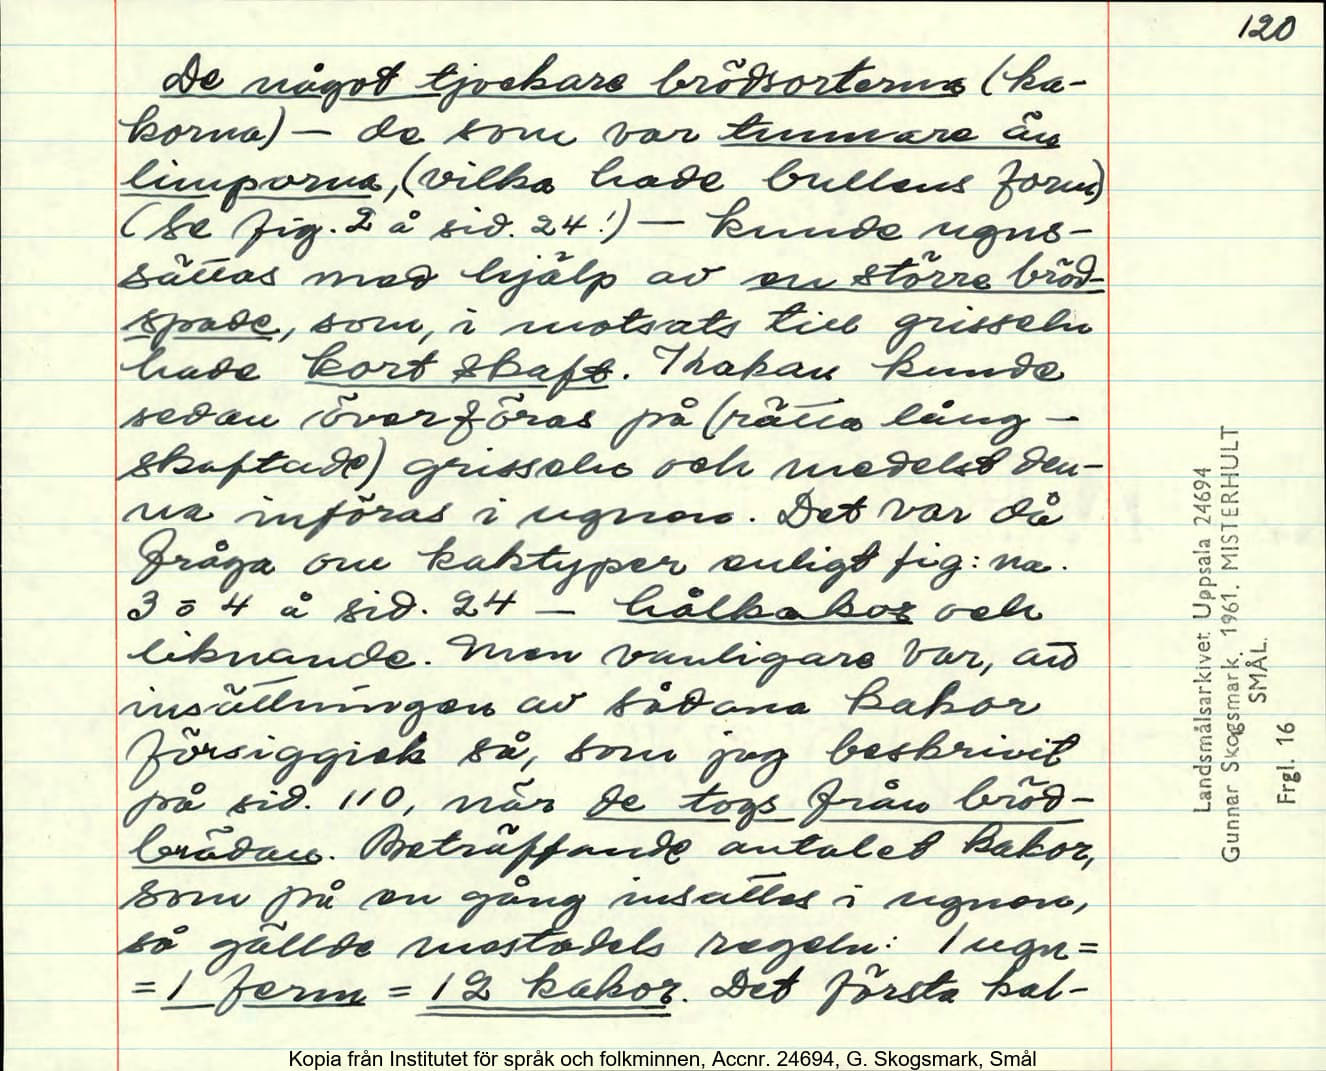 120
De något tjockare brödsorterna (ka-
korna) — de som var tunnare än
limporna, (vilka hade bullens form)
(Se fig. 2 å sid. 24!) — kunde ugns-
sättas med hjälp av en större bröd-
spade, som, i motsats till grisseln
hade kort skaft. Thakan kunde
sedan överföras på (rätta lång-
skaftade) grisseln och medelst den-
na införas i ugnen. Det var då
fråga om kaktyper enligt fig:na.
3 o 4 å sid. 24 — hålkakor och
liknande. Men vanligare var, att
insättningen av sådana kakor
försiggick så, som jag beskrivit
på sid. 110, när de togs från bröd-
brädan. Beträffande antalet kakor,
som på en gång insattes i ugnen,
så gällde mestadels regeln: 1 ugn =
= 1 ferm = 12 kakor. Det första kal-
Landsmålsarkivet Uppsala 24694
Gunnar Skogsmark. 1961. MISTERHULT
SMÅL.
Frgl. 16
Kopia från Institutet för språk och folkminnen, Accnr. 24694, G. Skogsmark, Smål